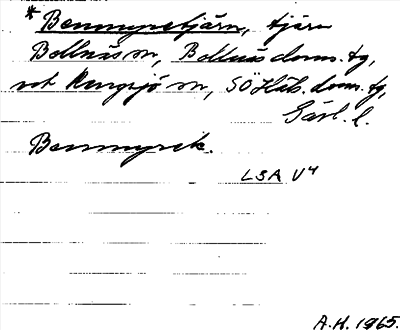 * Benmyretjärn, tjärn
Bollnäs sn, Bollnäs doms. tg,
mot Rengsjö sn, SÖHäls. doms. tg,
Gävl. l.
Benmyrek.
LSA V4
A.H. 1965.